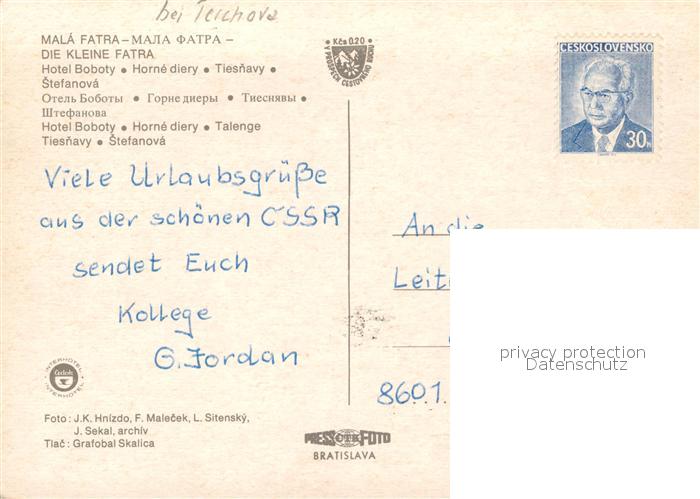 bei Terchova
MALÁ FATRA – МАЛА ФАТРА –
DIE KLEINE FATRA
Hotel Boboty • Horné diery • Tiesňavy •
Štefanová
Отель Боботы • Горне диеры • Тиеснявы •
Штефанова
Hotel Boboty • Horné diery • Talenge
Tiesňavy • Štefanová
Kčs 0.20
V PROSPECH CESTOVNÉHO RUCHU
ČESKOSLOVENSKO
30h
Viele Urlaubsgrüße
aus der schönen ČSSR
sendet Euch
Kollege
G. Jordan
An die
Leit
8601.
privacy protection
Datenschutz
INTERHOTEL
čedok
INTERHOTEL
Foto: J.K. Hnízdo, F. Maleček, L. Sitenský,
J. Sekal, archív
Tlač: Grafobal Skalica
PRESS ČTK FOTO
BRATISLAVA